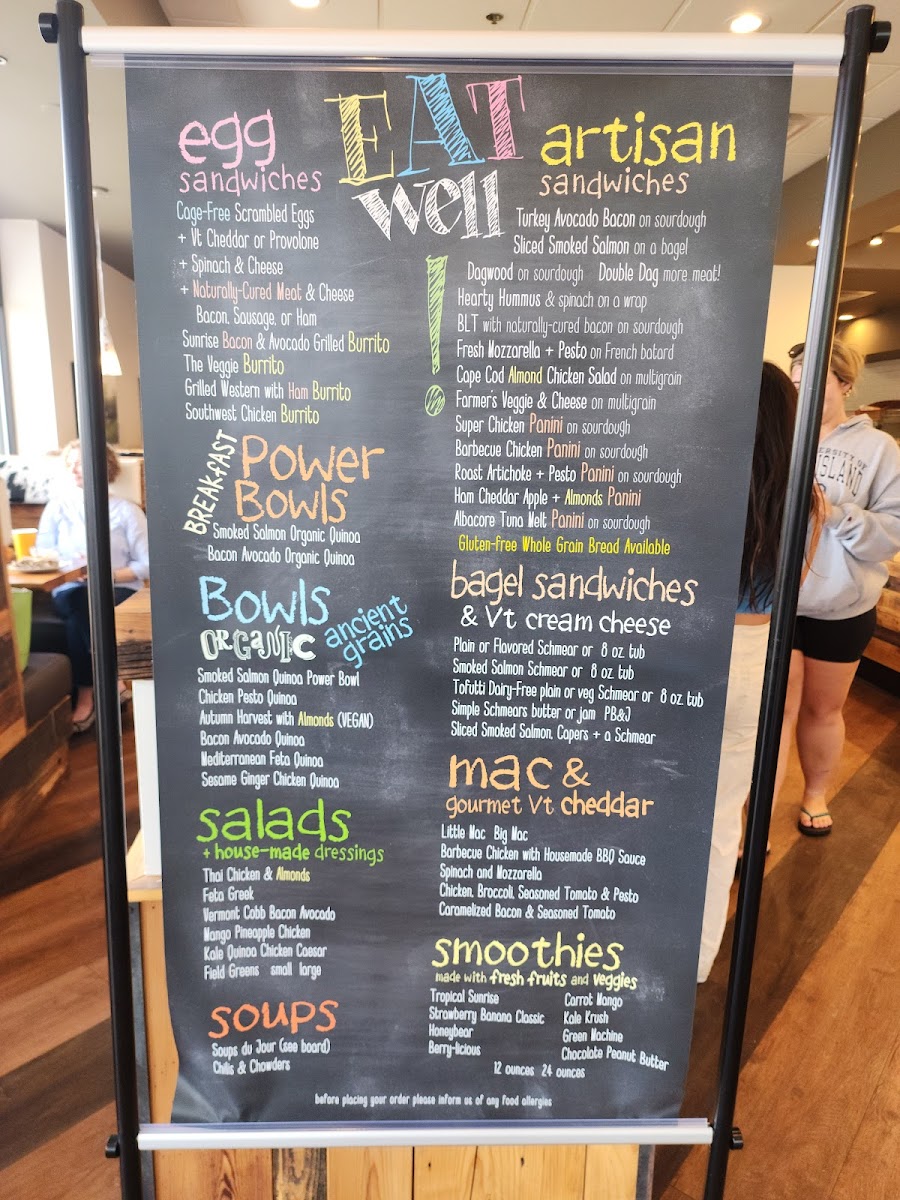 EAT
well
!
egg
sandwiches
Cage-Free Scrambled Eggs
+ Vt Cheddar or Provolone
+ Spinach & Cheese
+ Naturally-Cured Meat & Cheese
Bacon, Sausage, or Ham
Sunrise Bacon & Avocado Grilled Burrito
The Veggie Burrito
Grilled Western with Ham Burrito
Southwest Chicken Burrito
BREAKfAST
Power
Bowls
Smoked Salmon Organic Quinoa
Bacon Avocado Organic Quinoa
Bowls
ORGANIC
ancient
grains
Smoked Salmon Quinoa Power Bowl
Chicken Pesto Quinoa
Autumn Harvest with Almonds (VEGAN)
Bacon Avocado Quinoa
Mediterranean Feta Quinoa
Sesame Ginger Chicken Quinoa
salads
+ house-made dressings
Thai Chicken & Almonds
Feta Greek
Vermont Cobb Bacon Avocado
Mango Pineapple Chicken
Kale Quinoa Chicken Caesar
Field Greens small large
soups
Soups du Jour (see board)
Chilis & Chowders
artisan
sandwiches
Turkey Avocado Bacon on sourdough
Sliced Smoked Salmon on a bagel
Dagwood on sourdough Double Dag more meat!
Hearty Hummus & spinach on a wrap
BLT with naturally-cured bacon on sourdough
Fresh Mozzarella + Pesto on French batard
Cape Cod Almond Chicken Salad on multigrain
Farmer's Veggie & Cheese on multigrain
Super Chicken Panini on sourdough
Barbecue Chicken Panini on sourdough
Roast Artichoke + Pesto Panini on sourdough
Ham Cheddar Apple + Almonds Panini
Albacore Tuna Melt Panini on sourdough
Gluten-free Whole Grain Bread Available
bagel sandwiches
& Vt cream cheese
Plain or Flavored Schmear or 8 oz. tub
Smoked Salmon Schmear or 8 oz. tub
Tofutti Dairy-Free plain or veg Schmear or 8 oz. tub
Simple Schmears butter or jam PB&J
Sliced Smoked Salmon, Capers + a Schmear
mac &
gourmet Vt cheddar
Little Mac Big Mac
Barbecue Chicken with Housemade BBQ Sauce
Spinach and Mozzarella
Chicken, Broccoli, Seasoned Tomato & Pesto
Caramelized Bacon & Seasoned Tomato
smoothies
made with fresh fruits and veggies
Tropical Sunrise
Strawberry Banana Classic
Honeybear
Berry-licious
Carrot Mango
Kale Krush
Green Machine
Chocolate Peanut Butter
12 ounces 24 ounces
before placing your order please inform us of any food allergies